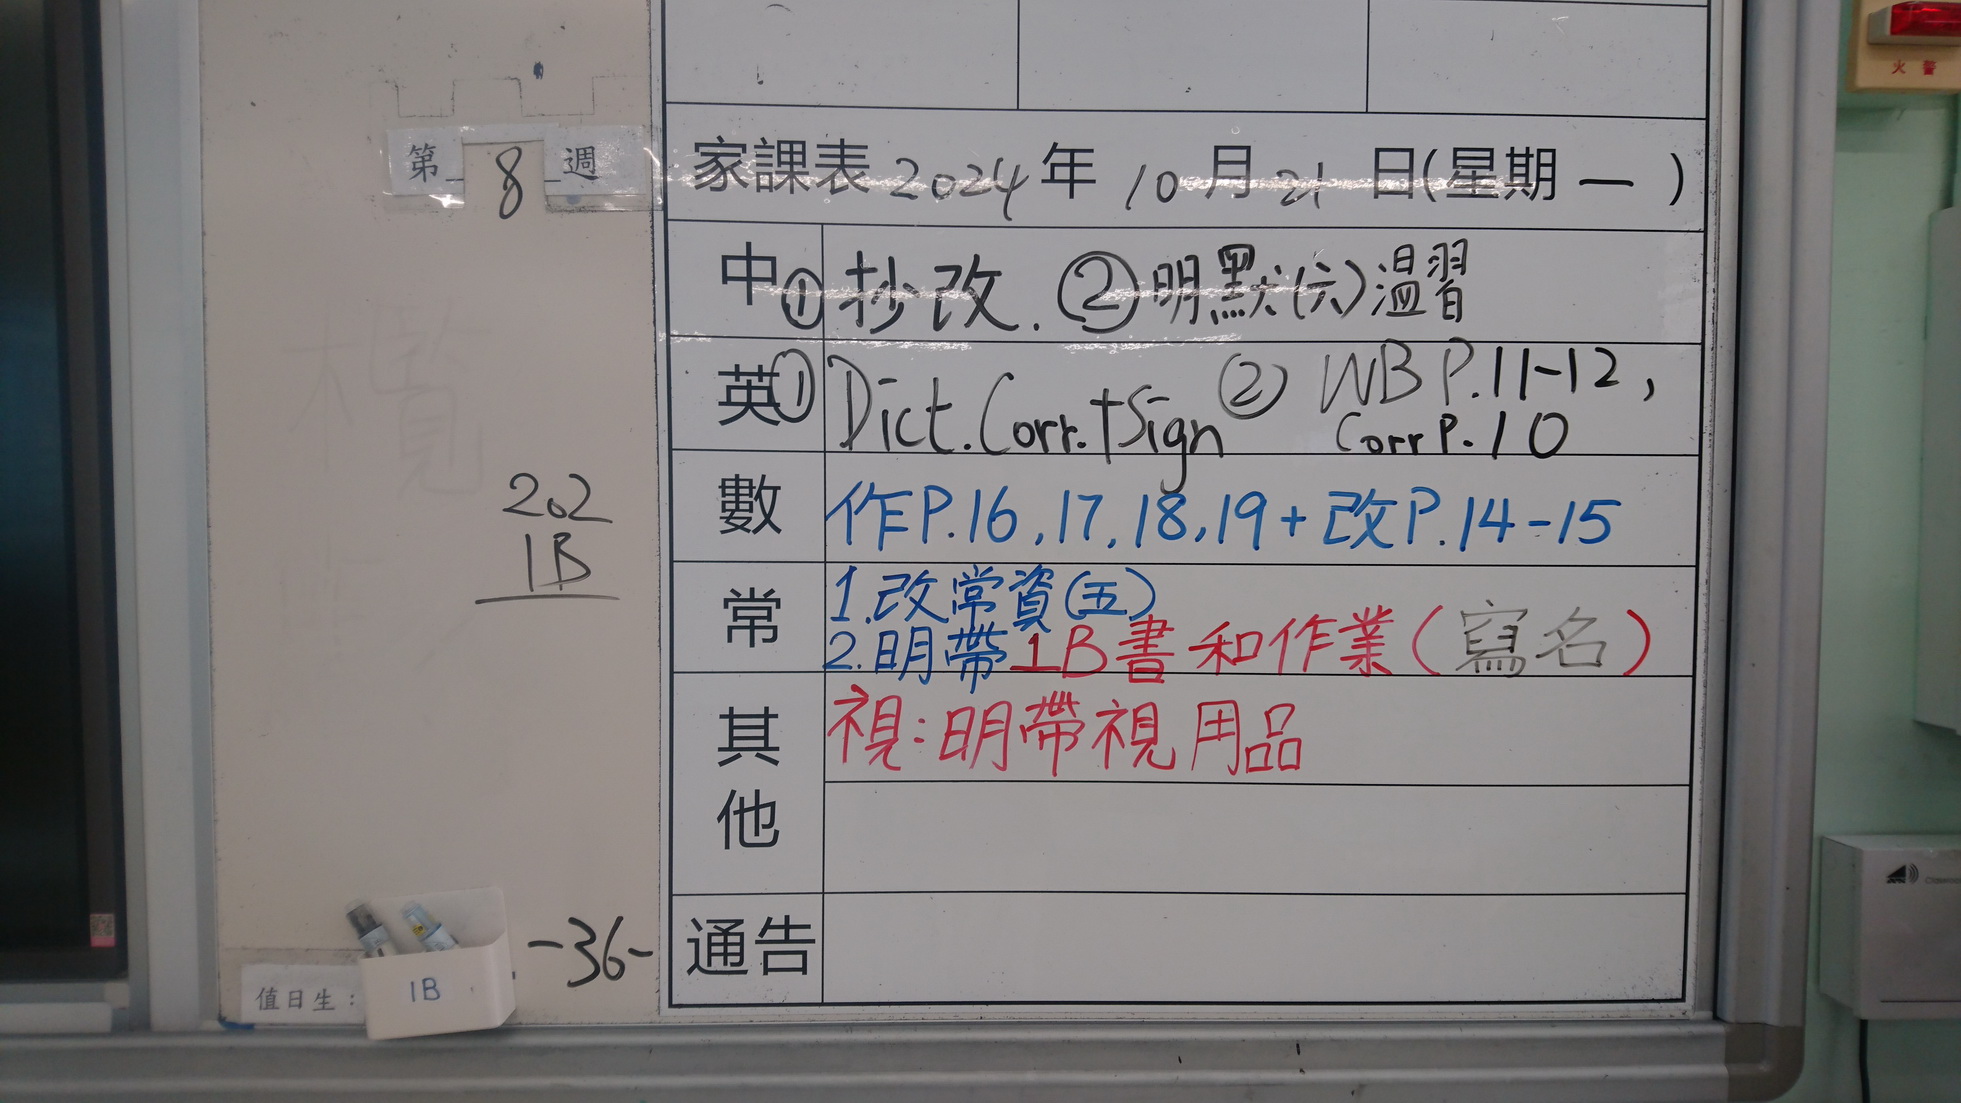 火警
第 8 週
家課表 2024 年 10 月 21 日(星期 一 )
中 ① 抄改. ② 明默(六)溫習
英 ① Dict. Corr. + Sign ② WB P.11-12,
Corr P.10
數 作P.16, 17, 18, 19 + 改P.14-15
常 1. 改常資(五)
2. 明帶1B書和作業(寫名)
其他 視:明帶視用品
通告
202
1B
-36-
值日生:
1B